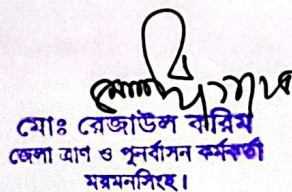 মোঃ রেজাউল করিম
জেলা ত্রাণ ও পুনর্বাসন কর্মকর্তা
ময়মনসিংহ।